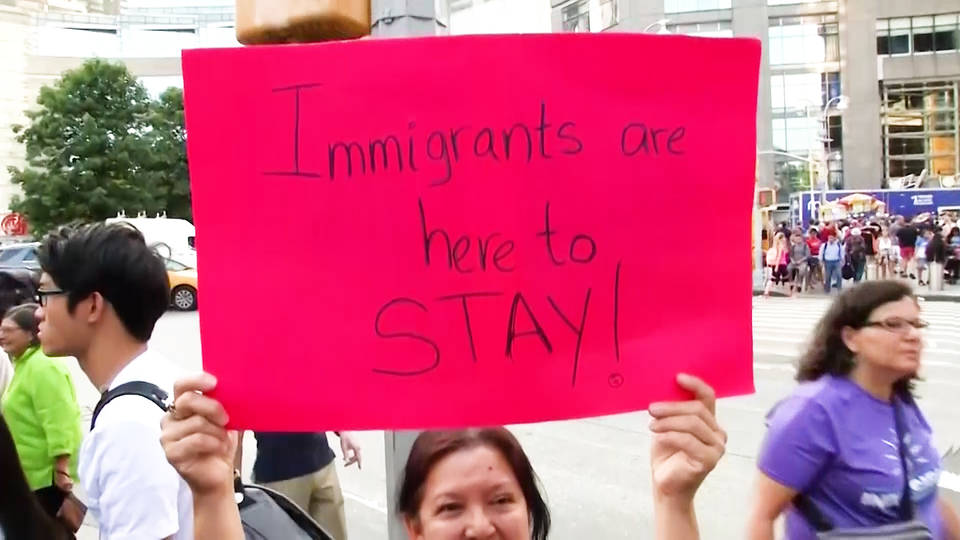 Immigrants are
here to
STAY!